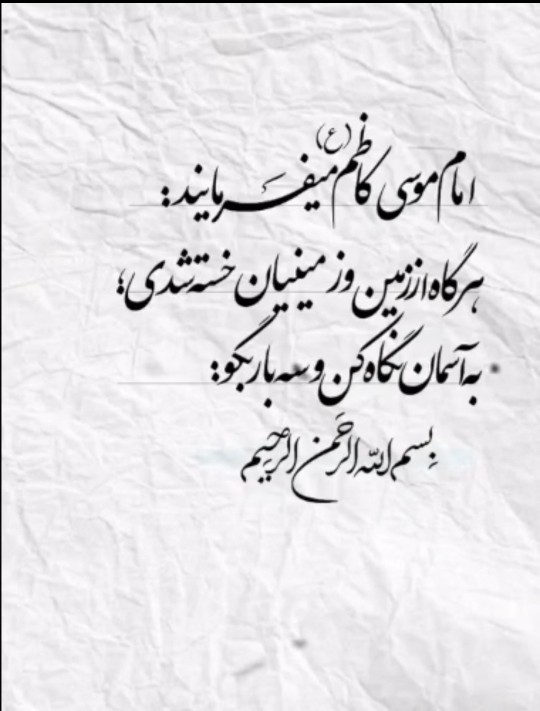 امام موسی کاظم (ع) میفرمایند:
هرگاه از زمین و زمینیان خسته شدی؛
به آسمان نگاه کن و سه بار بگو:
بسم الله الرحمن الرحیم